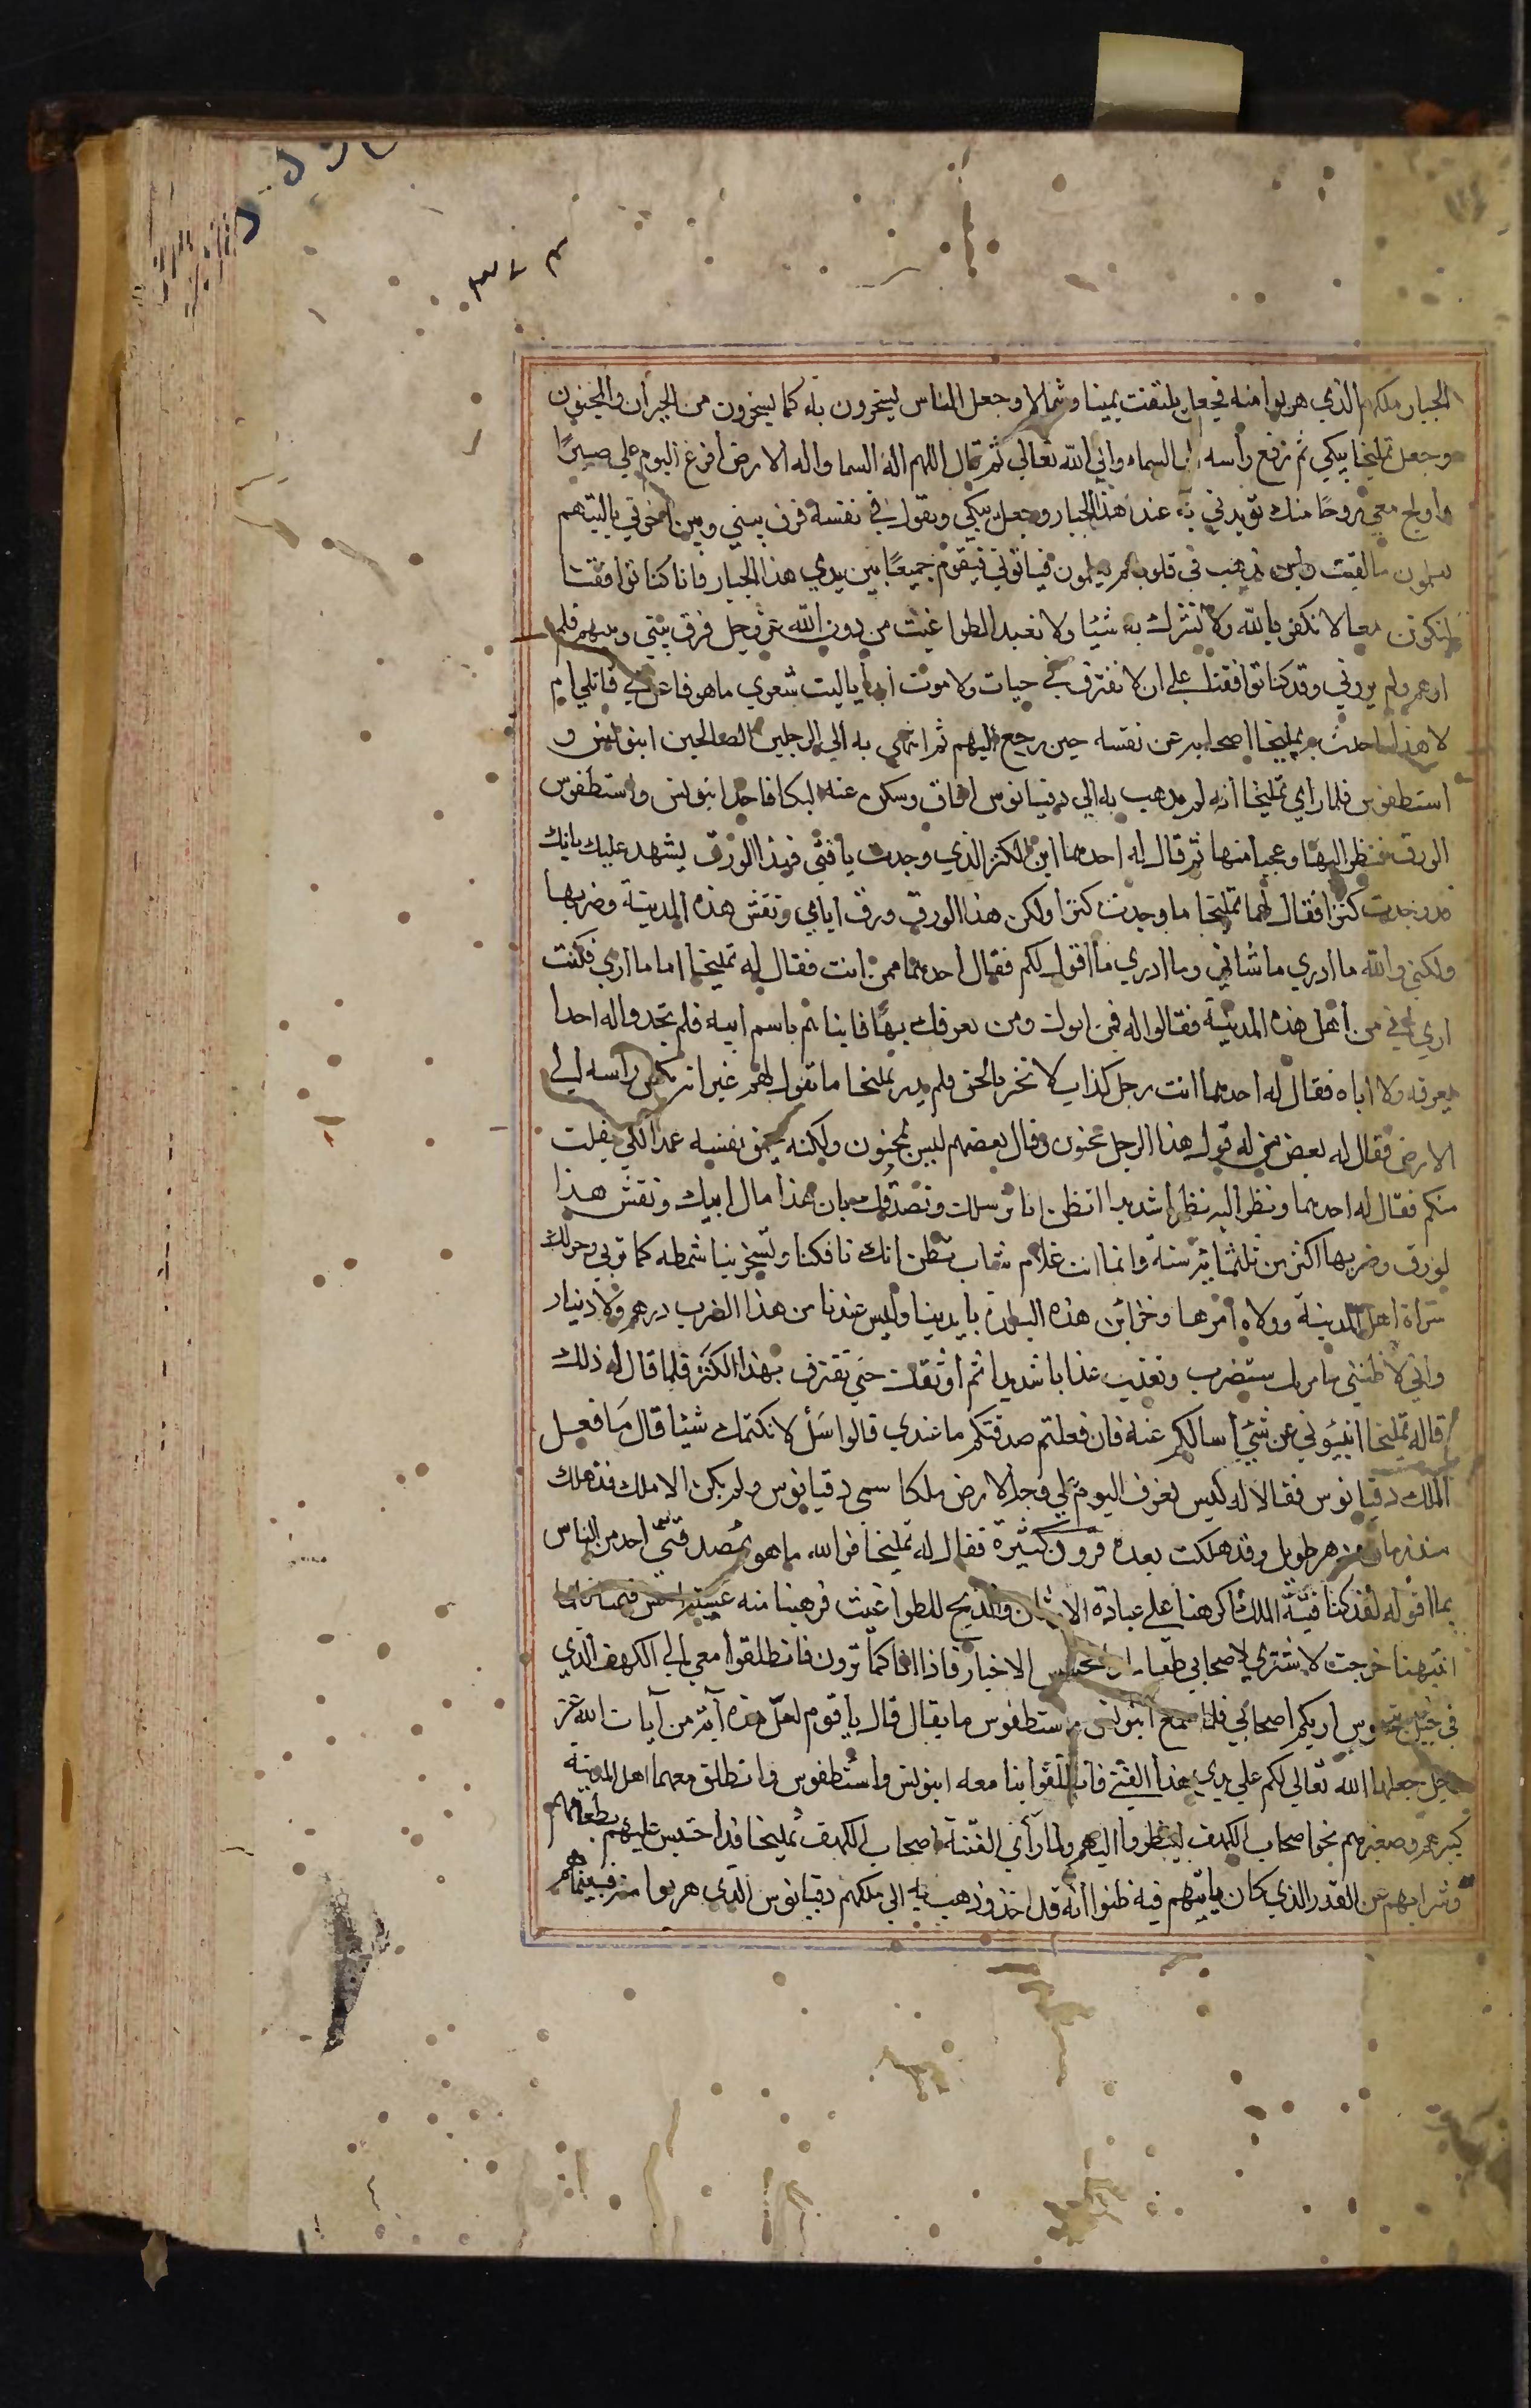 الجبار ملكهم الذي هربوا منه فجعل يلتفت يمينا وشمالا وجعل الناس يسخرون به كما يسخرون من الحيران والمجنون
وجعل تمليخا يبكي ثم رفع رأسه الى السماء والى الله تعالي ثم قال اللهم اله السما واله الارض أفرغ اليوم علي صبرًا
واولج معي روحًا منك تؤيدني به عند هذا الجبار وجعل يبكي ويقول في نفسه فرق بيني وبين اخوتي ياليتهم
يعلمون ما لقيت واين يذهب بي فلو انهم يعلمون فياتوني فنقوم جميعًا بين يدي هذا الجبار فانا كنا توافقنا
لنكونن معا لا نكفر بالله ولا نشرك به شيئا ولا نعبد الطواغيت من دون الله عز وجل فرق بيني وبينهم فلم
ارهم ولم يروني وقد كنا توافقنا على ان لا نفترق في حيات ولا موت أبدا ياليت شعري ما هو فاعل بي قاتلي ام
لا هذا ماحدث به تمليخا اصحابه عن نفسه حين رجع اليهم ثم انتهى به الي الرجلين الصالحين اينوليس و
استطفوس فلما راي تمليخا انه لم يذهب به الي دقيانوس افاق وسكن عنه البكا فاخذ اينوليس واستطفوس
الورق فنظرا اليها وعجبا منها ثم قال له احدهما اين الكنز الذي وجدت يافتى فهذا الورق يشهد عليك بانك
قد وجدت كنزا فقال لهما تمليخا ما وجدت كنزا ولكن هذا الورق ورق ابايي ونقش هذه المدينة وضربها
ولكني والله ما ادري ما شاني وما ادري ما اقول لكم فقال احدهما ممن انت فقال له تمليخا اما ما اري فكنت
اري اني من أهل هذه المدينة فقالوا له فمن ابوك ومن يعرفك بها فانباهم باسم ابيه فلم يجدوا له احدا
يعرفه ولا اباه فقال له احدهما انت رجل كذاب لا تخبر بالحق فلم يدر تمليخا ما يقول لهم غير انه نكس راسه الي
الارض فقال له بعض من حوله هذا الرجل مجنون وقال بعضهم ليس بمجنون ولكنه يحمق نفسه عمدا لكي يفلت
منكم فقال له احدهما ونظر اليه نظرا شديدا اتظن انا نرسلك ونصدقك بان هذا مال ابيك ونقش هذا
الورق وضربها اكثر من ثلثماية سنة وانما انت غلام شاب تظن انك تافكنا وتسخر بنا ونحن شمط كما تري وحولك
سراة اهل المدينة وولاة امرها وخزائن هذه البلدة بايدينا وليس عندنا من هذا الضرب درهم ولا دينار
واني لاظنني سامر بك ستضرب وتعذب عذابا شديدا ثم أوثقك حتي تعترف بهذا الكنز فلما قال له ذلك
قال تمليخا انبئوني عن شيئ أسالكم عنه فان فعلتم صدقتكم ما عندي قالوا سَل لا نكتمك شيئا قال ما فعل
الملك دقيانوس فقالا له ليس نعرف اليوم علي وجه الارض ملكا يسمى دقيانوس ولم يكن الا ملك قد هلك
منذ زمان ودهر طويل وقد هلكت بعده قرون كثيرة فقال له تمليخا فوالله ما هو بمصدقي احد من الناس
بما اقوله لقد كنا فتية الملك اكرهنا على عبادة الاوثان والذبح للطواغيت فهربنا منه عشية امس فنمنا فلما
انتبهنا خرجت لاشتري لاصحابي طعاما واتجسس الاخبار فاذا انا كما ترون فانطلقوا معي الى الكهف الذي
في جبل بنجلوس اريكم اصحابي فلما سمع اينوليس واستطفوس ما يقال قال ياقوم لعل هذه آية من آيات الله عز
وجل جعلها الله تعالى لكم على يدي هذا الفتي فانطلقوا بنا معه اينوليس واستطفوس وانطلق معهما اهل المدينة
كبيرهم وصغيرهم نحو اصحاب الكهف لينظروا اليهم ولما رأي الفتية اصحاب الكهف تمليخا قد احتبس عليهم بطعامهم
وشرابهم عن القدر الذي كان ياتيهم فيه ظنوا انه قد اخذ وذهب به الي ملكهم دقيانوس الذي هربوا منه فبينماهم